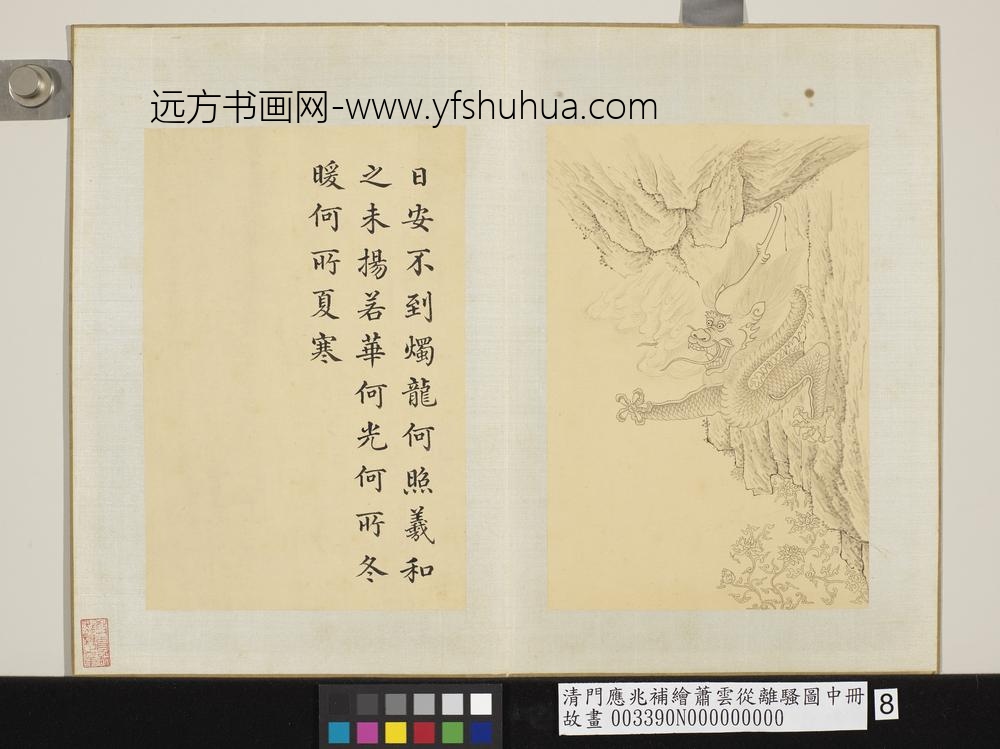 远方书画网-www.yfshuhua.com
日安不到燭龍何照羲和
之未揚若華何光何所冬
暖何所夏寒
清門應兆補繪蕭雲從離騷圖中冊
故畫 003390N000000000
8